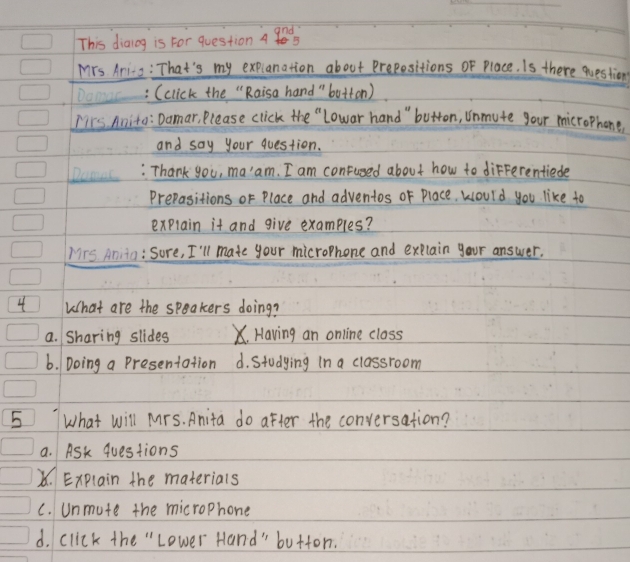 This dialog is For question 4 to and 5
Mrs Anita: That's my explanation about Prepositions OF Place. Is there question
Damar : (click the "Raisa hand" button)
Mrs Anita: Damar, Please click the "Lowar hand" button, Unmute your microPhone,
and say your question.
Damar : Thank you, ma'am. I am conFused about how to diFFerentiede
PrePasitions oF Place and adventos oF Place. would you like to
explain it and give examples?
Mrs. Anita: Sure, I'll mate your microPhone and explain your answer.
4 What are the sPeakers doing?
a. Sharing slides X. Having an online class
b. Doing a Presentation d. Studying In a classroom
5 What will Mrs. Anita do aFter the conversation?
a. Ask questions
X. Explain the materials
c. Unmute the microPhone
d. Click the "Lower Hand" button.